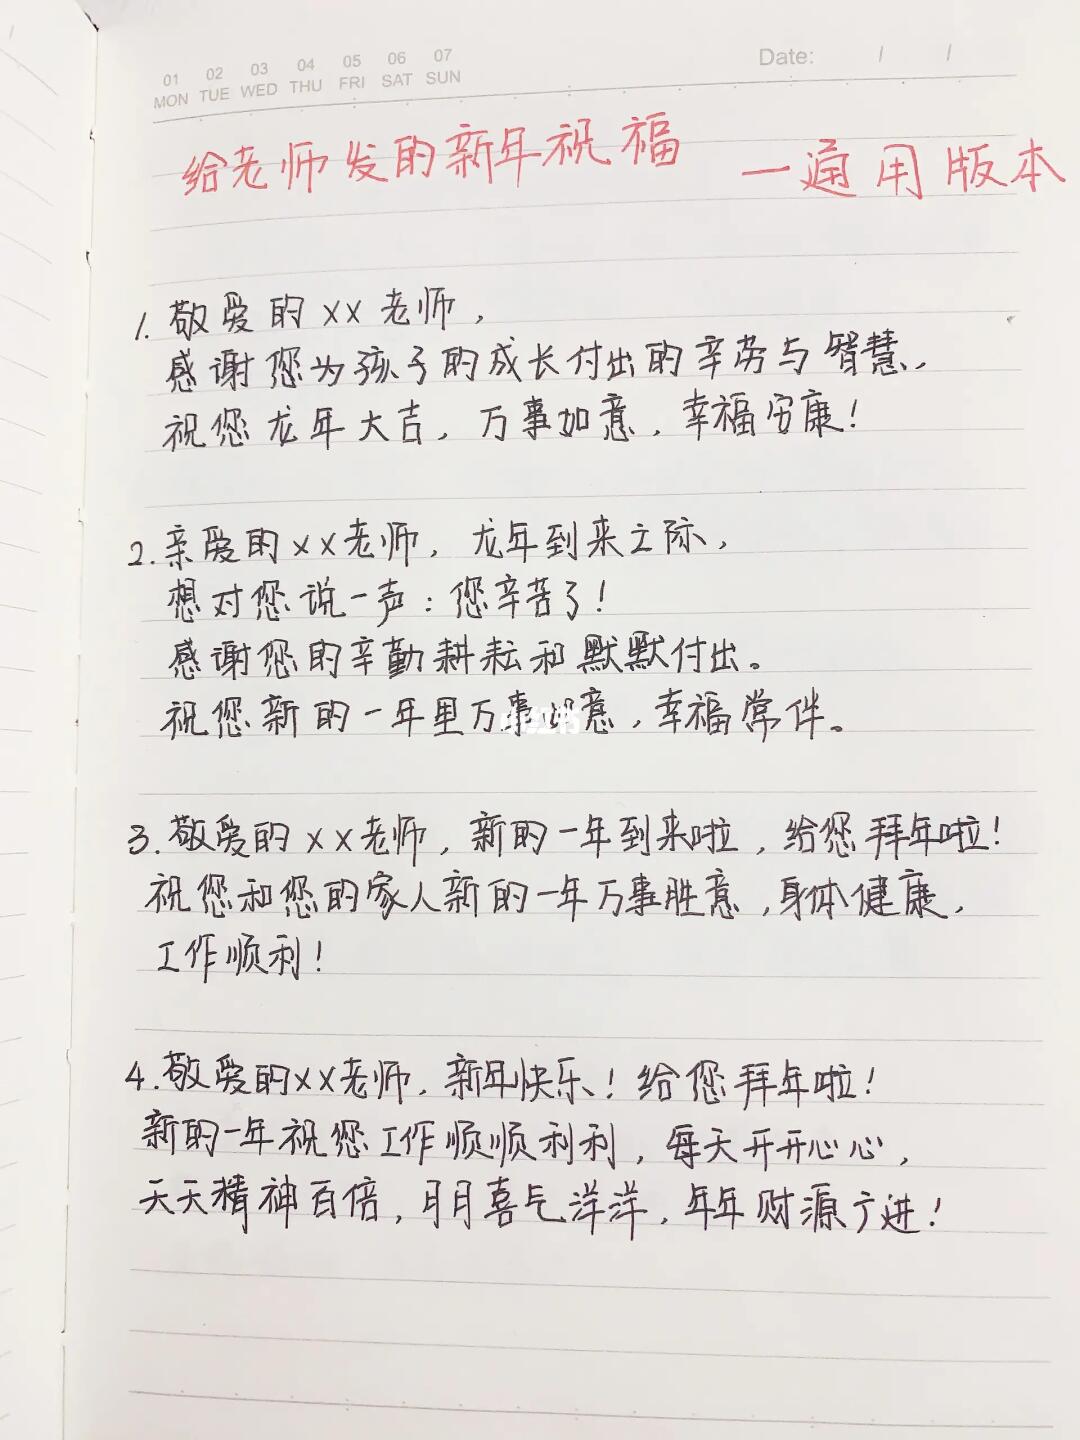 01 02 03 04 05 06 07
MON TUE WED THU FRI SAT SUN
Date: / /
给老师发的新年祝福 一通用版本
1. 敬爱的xx老师，
感谢您为孩子的成长付出的辛劳与智慧，
祝您龙年大吉，万事如意，幸福安康！
2. 亲爱的xx老师，龙年到来之际，
想对您说一声：您辛苦了！
感谢您的辛勤耕耘和默默付出。
祝您新的一年里万事如意，幸福常伴。
小红书
3. 敬爱的xx老师，新的一年到来啦，给您拜年啦！
祝您和您的家人新的一年万事胜意，身体健康，
工作顺利！
4. 敬爱的xx老师，新年快乐！给您拜年啦！
新的一年祝您工作顺顺利利，每天开开心心，
天天精神百倍，月月喜气洋洋，年年财源广进！